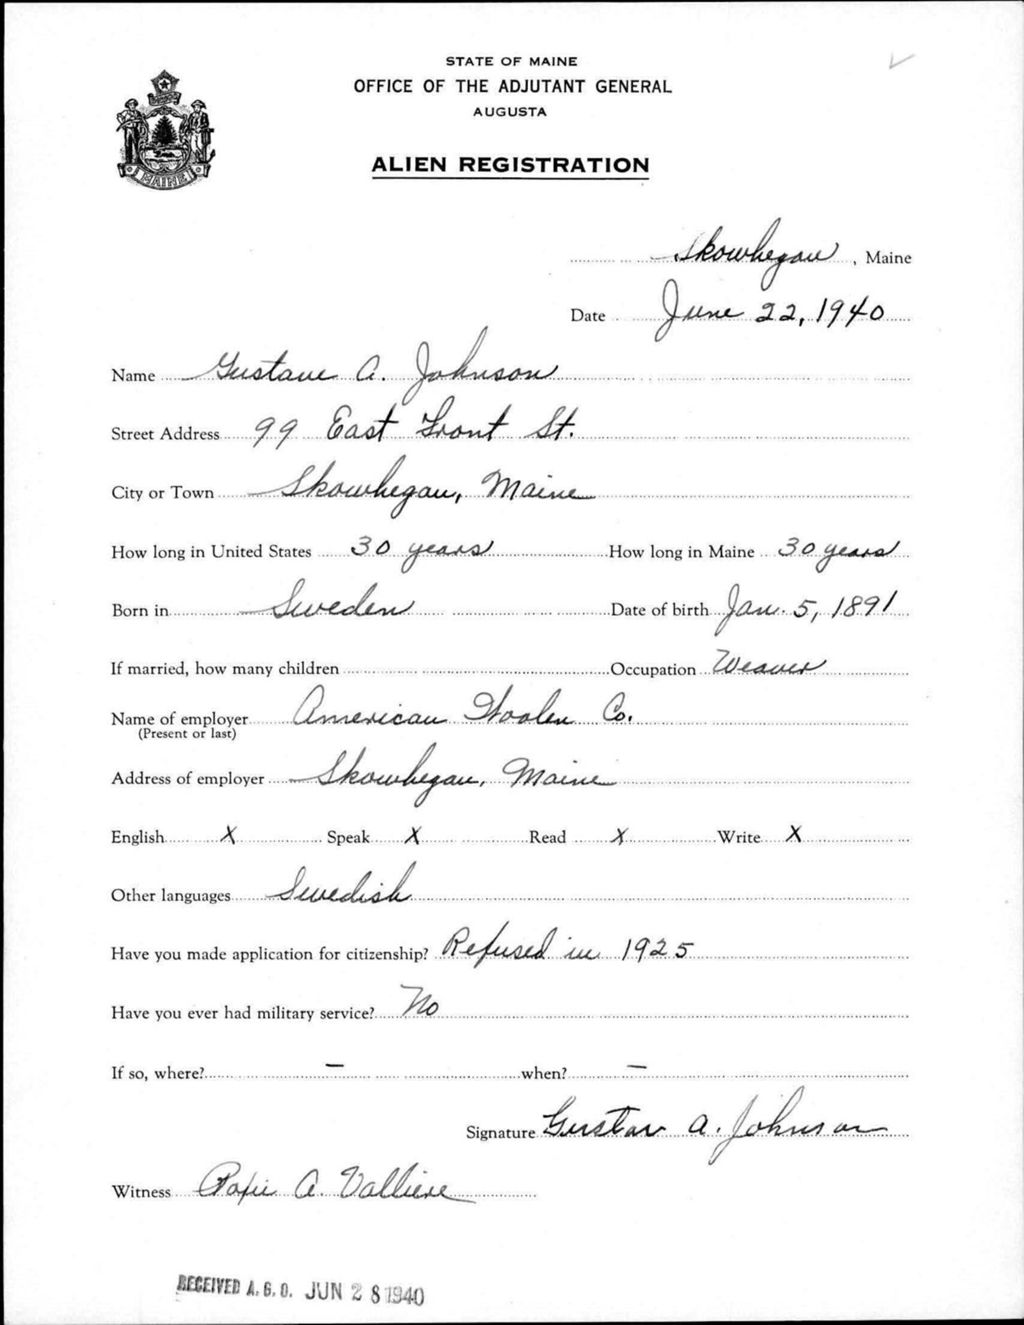 STATE OF MAINE
OFFICE OF THE ADJUTANT GENERAL
AUGUSTA
ALIEN REGISTRATION
MAINE
Skowhegan, Maine
Date June 22, 1940
Name Gustave A. Johnson
Street Address 99 East Front St.
City or Town Skowhegan, Maine
How long in United States 30 years How long in Maine 30 years
Born in Sweden Date of birth Jan. 5, 1891
If married, how many children Occupation Weaver
Name of employer American Woolen Co.
(Present or last)
Address of employer Skowhegan, Maine
English X Speak X Read X Write X
Other languages Swedish
Have you made application for citizenship? Refused in 1925
Have you ever had military service? No
If so, where? – when? –
Signature Gustav A. Johnson
Witness A. Valliere
RECEIVED A.G.O. JUN 28 1940